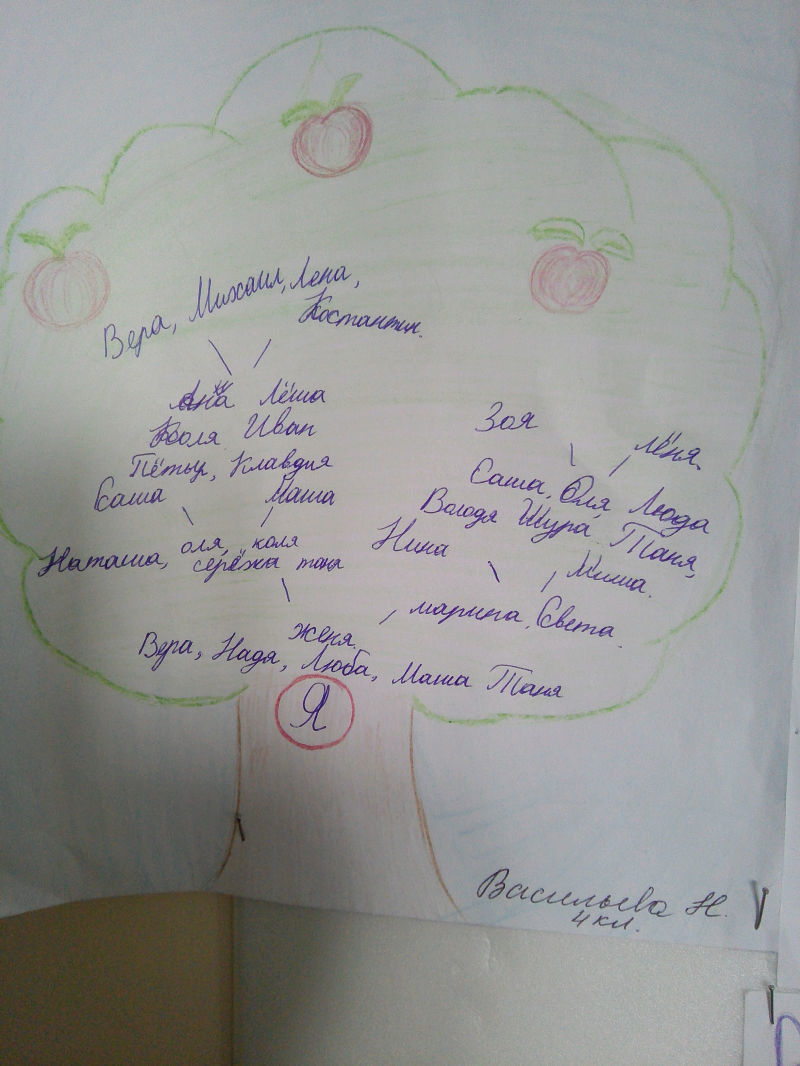 Вера, Михаил, Лена,
Костантин.
Аня Лёша
Коля Иван
Пётр, Клавдия
Саша Маша
Наташа, оля, коля
серёжа таня
Зоя Лёня.
Саша, Оля Люда
Володя Шура, Таня,
Нина Миша.
марина, Света.
Женя.
Вера, Надя, Люба, Маша Таня
Я
Васильева Н.
4 кл.